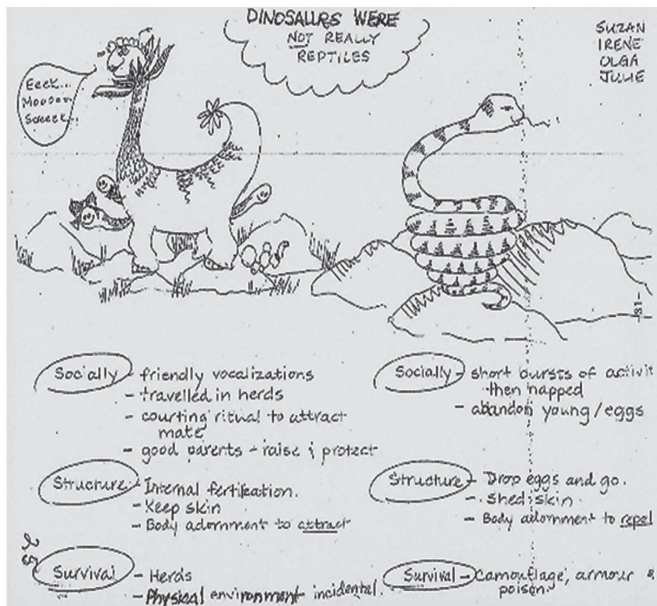 DINOSAURS WERE
NOT REALLY
REPTILES
SUZAN
IRENE
OLGA
JULIE
Eeek...
Moooon
-31-
Socially - friendly vocalizations
- travelled in herds
- courting ritual to attract
mate
- good parents - raise & protect
Structure - Internal fertilization.
- Keep skin
- Body adornment to attract
Survival - Herds
- Physical environment incidental.
25
Socially - short bursts of activit
then napped
- abandon young/eggs
Structure - Drop eggs and go.
- Shed skin
- Body adornment to repel
Survival - Camouflage, armour &
poison.